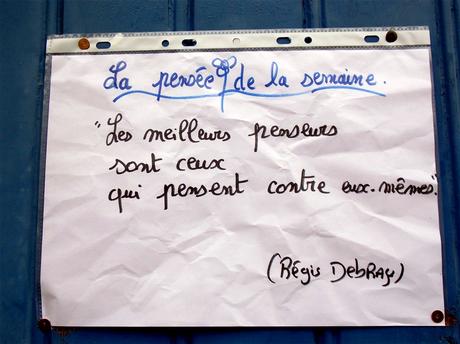 La pensée de la semaine.
"Les meilleurs penseurs
sont ceux
qui pensent contre eux-mêmes."
(Régis DebRay)